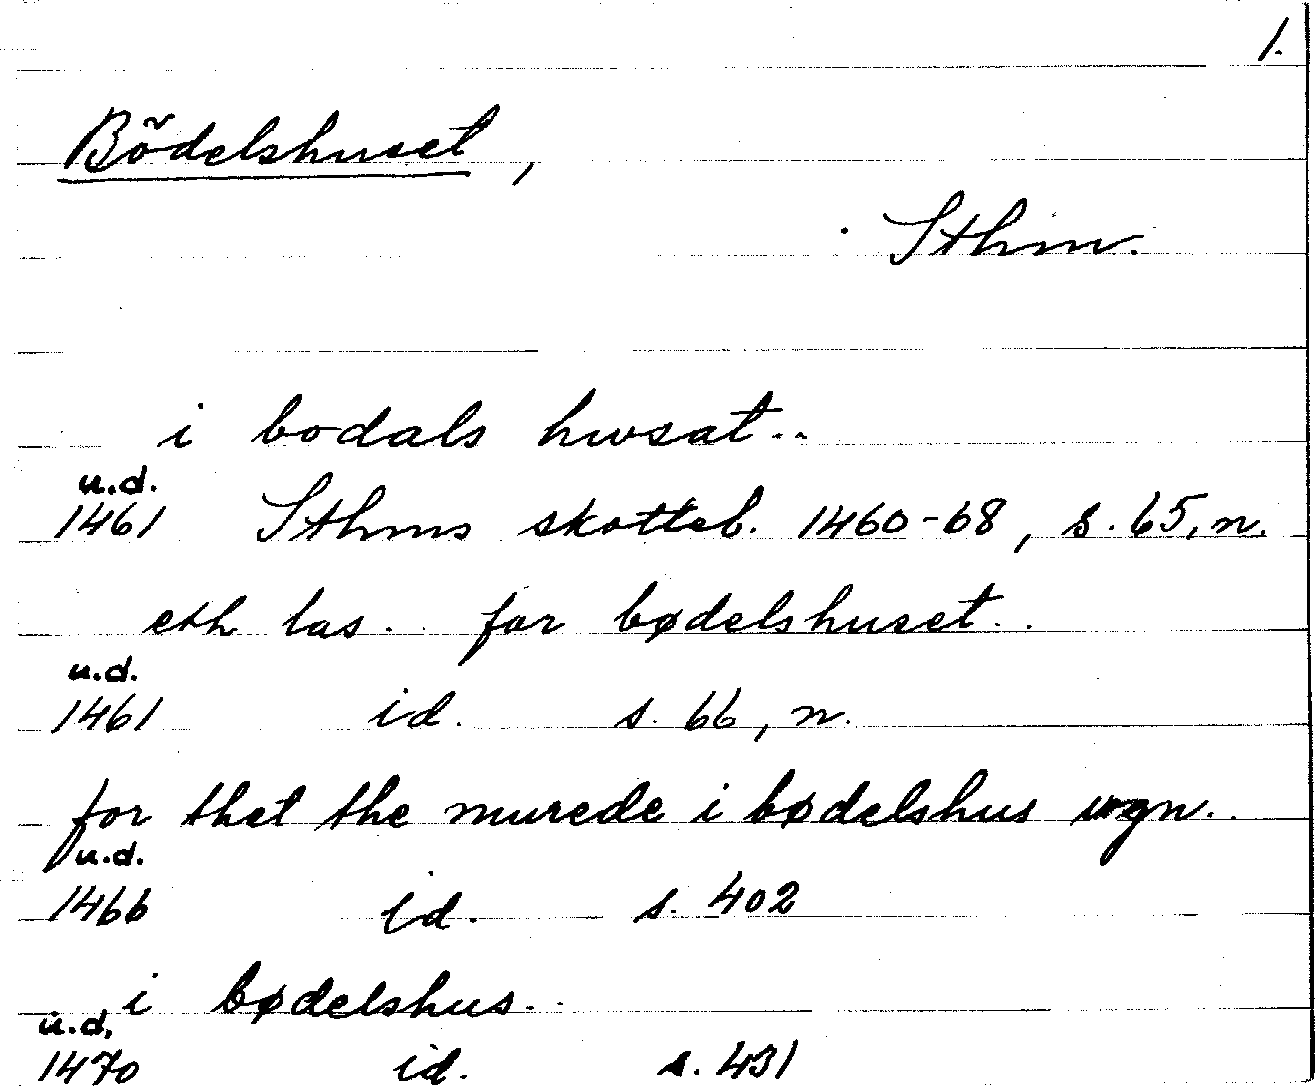 1.
Bödelshuset,
Sthm.
i bodals hwsat..
u.d.
1461 Sthms skotteb. 1460-68, s. 65, n.
eth las.. for bødelshuset..
u.d.
1461 id. s. 66, n.
for thet the murede i bødelshus wgn..
u.d.
1466 id. s. 402
i bødelshus..
u.d.
1470 id. s. 431